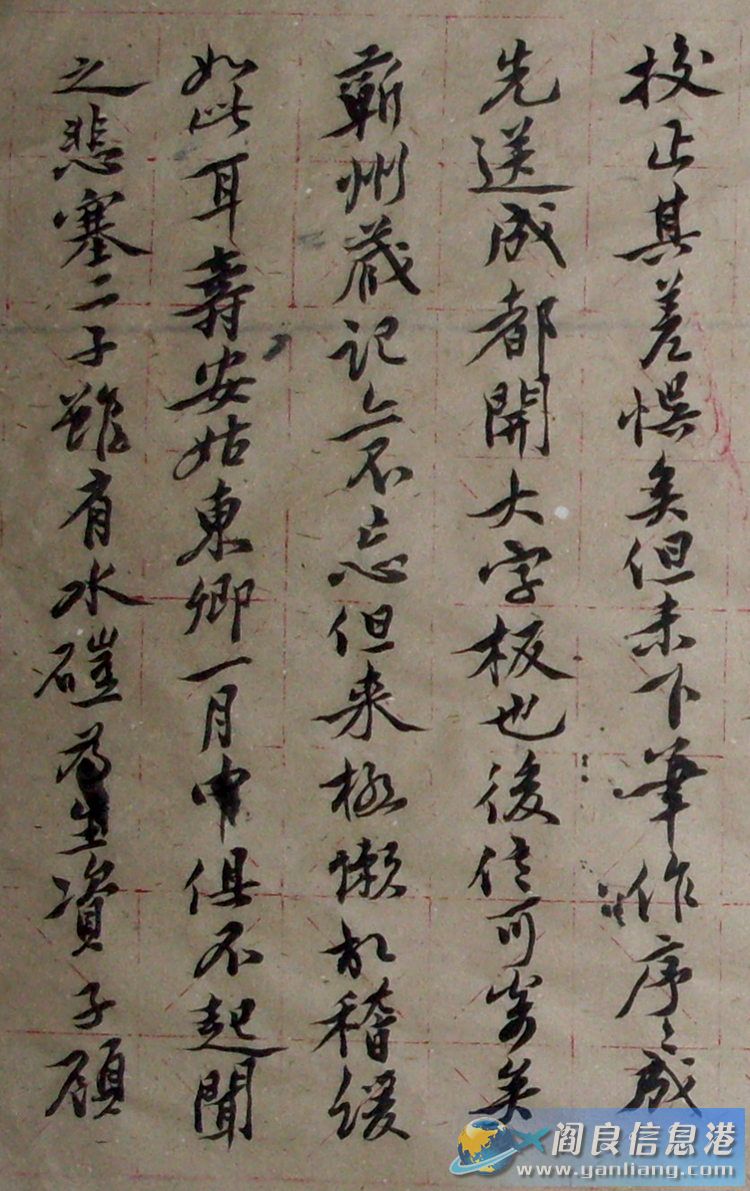 校正其差悮矣但未下筆作序之成
先送成都開大字板也後信可寄矣
蘄州藏记亦不忘但未極懶故稽緩
如此耳壽安姑東卿一月中俱不起聞
之悲塞二子雖有水磑為生資子顧
阎良信息港
www.yanliang.com